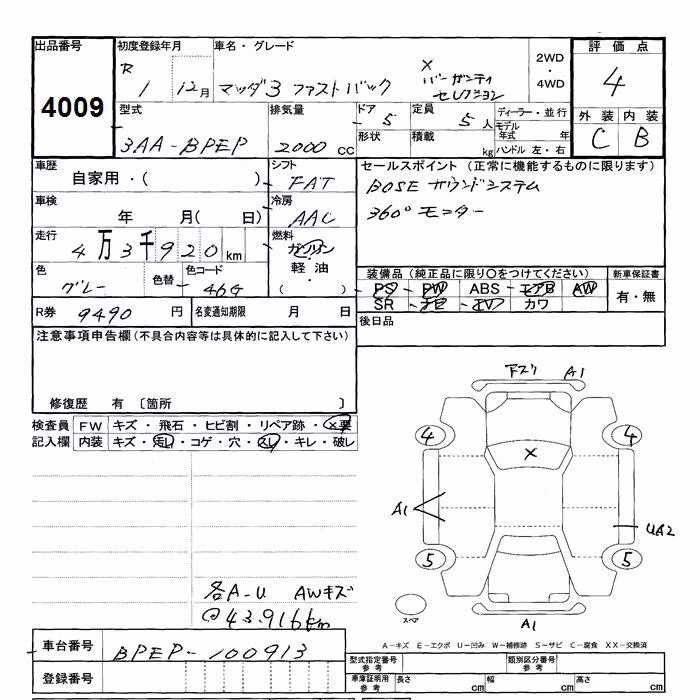 出品番号
4009
初度登録年月
R 1 12月
車名・グレード
マツダ3 ファストバック
X
バーガンディ
セレクション
2WD
・
4WD
評価点
4
型式
3AA-BPEP
排気量
2000 CC
ドア
5
定員
5人
ディーラー・並行
モデル年式 年
形状
積載 kg
ハンドル 左・右
外装 内装
C B
車歴
自家用・( )
シフト
FAT
セールスポイント (正常に機能するものに限ります)
BOSE サウンドシステム
360°モニター
車検
年 月( 日)
冷房
AAC
走行
4万3千920km
燃料
ガソリン
・
軽油
・
( )
色
グレー
色替
色コード
46G
装備品 (純正品に限り〇をつけてください)
PS PW ABS エアB AW
SR ナビ TV カワ
新車保証書
有・無
R券
9490 円
名変通知期限 月 日
後日品
注意事項申告欄 (不具合内容等は具体的に記入して下さい)
修復歴 有 〔箇所 〕
検査員記入欄
FW キズ・飛石・ヒビ割・リペア跡・X要
内装 キズ・汚れ・コゲ・穴・スレ・キレ・破レ
下スリ A1
4 4
X
A1
UA2
5 5
スペア
A1
各A-U AWキズ
@43,916km
A-キズ E-エクボ U-凹み W-補修跡 S-サビ C-腐食 XX-交換済
車台番号
BPEP-100913
登録番号
型式指定番号 参考
類別区分番号 参考
車庫証明用 参考
長さ cm
幅 cm
高さ cm